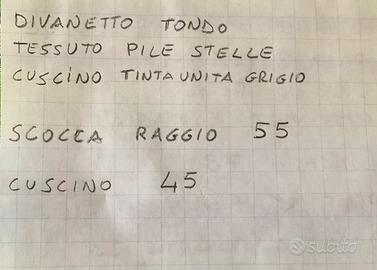 DIVANETTO TONDO
TESSUTO PILE STELLE
CUSCINO TINTAUNITA GRIGIO
SCOCCA RAGGIO 55
CUSCINO 45
subito